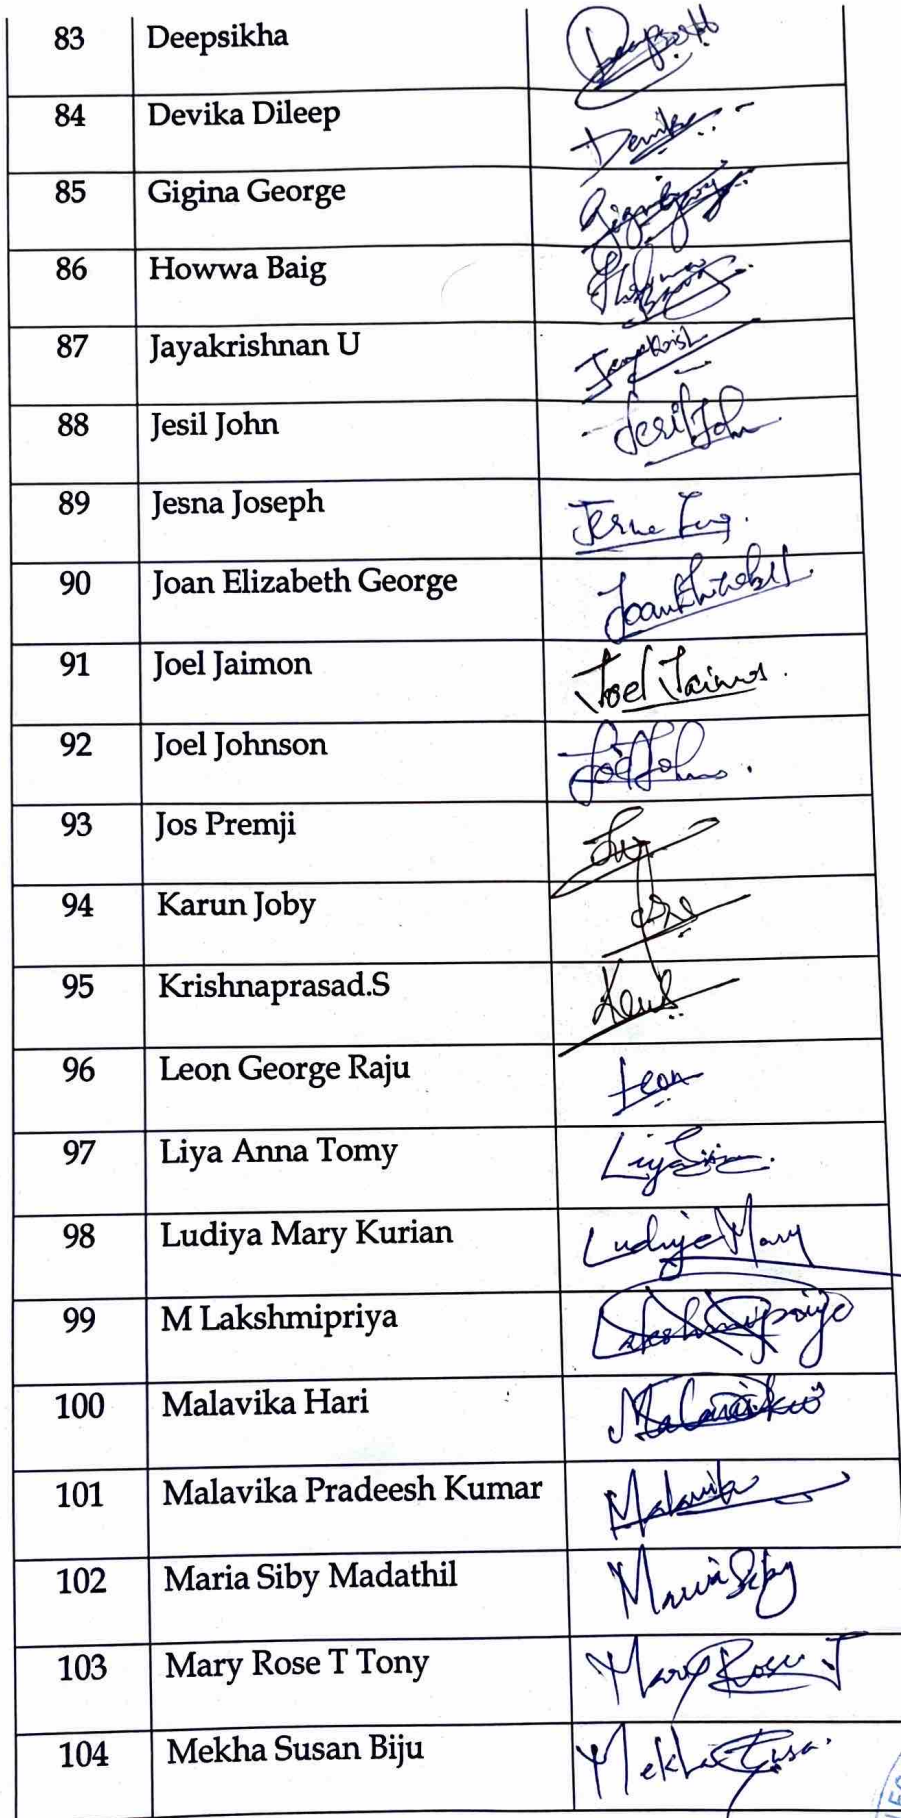 83 Deepsikha
84 Devika Dileep Devika
85 Gigina George
86 Howwa Baig
87 Jayakrishnan U Jayakrish
88 Jesil John Jesil John
89 Jesna Joseph
90 Joan Elizabeth George
91 Joel Jaimon Joel
92 Joel Johnson
93 Jos Premji
94 Karun Joby
95 Krishnaprasad.S
96 Leon George Raju Leon
97 Liya Anna Tomy Liya
98 Ludiya Mary Kurian Ludiya Mary
99 M Lakshmipriya Lakshmipriya
100 Malavika Hari Malavika
101 Malavika Pradeesh Kumar Malavika
102 Maria Siby Madathil Maria Siby
103 Mary Rose T Tony Mary Rose T
104 Mekha Susan Biju Mekha